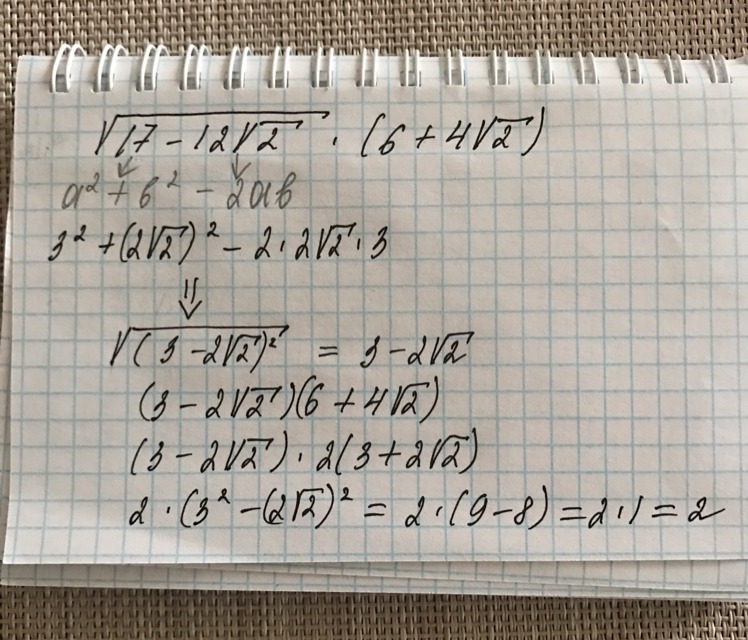 √(17 − 12√2) · (6 + 4√2)
a² + b² − 2ab
3² + (2√2)² − 2 · 2√2 · 3
⇓
√((3 − 2√2)²) = 3 − 2√2
(3 − 2√2)(6 + 4√2)
(3 − 2√2) · 2(3 + 2√2)
2 · (3² − (2√2)² = 2 · (9 − 8) = 2 · 1 = 2